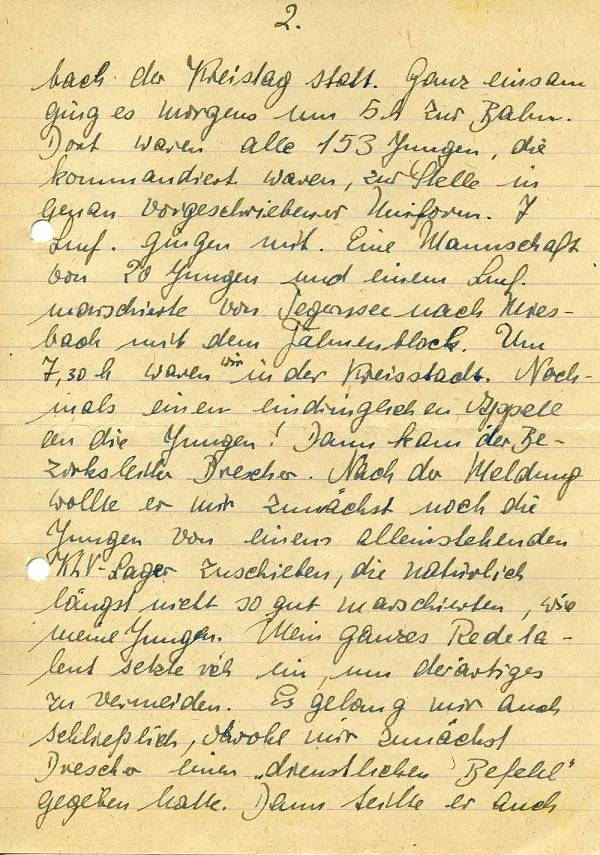 2.
bach der Kreistag statt. Ganz einsam
ging es morgens um 5 h zur Bahn.
Dort waren alle 153 Jungen, die
kommandiert waren, zur Stelle in
genau vorgeschriebener Uniform. 7
Lmf. gingen mit. Eine Mannschaft
von 20 Jungen und einem Lmf.
marschierte von Tegernsee nach Mies-
bach mit dem Fahnenblock. Um
7,30 h waren wir in der Kreisstadt. Noch-
mals einen eindringlichen Appell
an die Jungen! Dann kam der Be-
zirksleiter Drescher. Nach der Meldung
wollte er mir zunächst noch die
Jungen von einem alleinstehenden
KLV-Lager zuschieben, die natürlich
längst nicht so gut marschierten, wie
meine Jungen. Mein ganzes Redeta-
lent setzte ich ein, um derartiges
zu vermeiden. Es gelang mir auch
schließlich, obwohl mir zunächst
Drescher einen „dienstlichen Befehl“
gegeben hatte. Dann teilte er auch